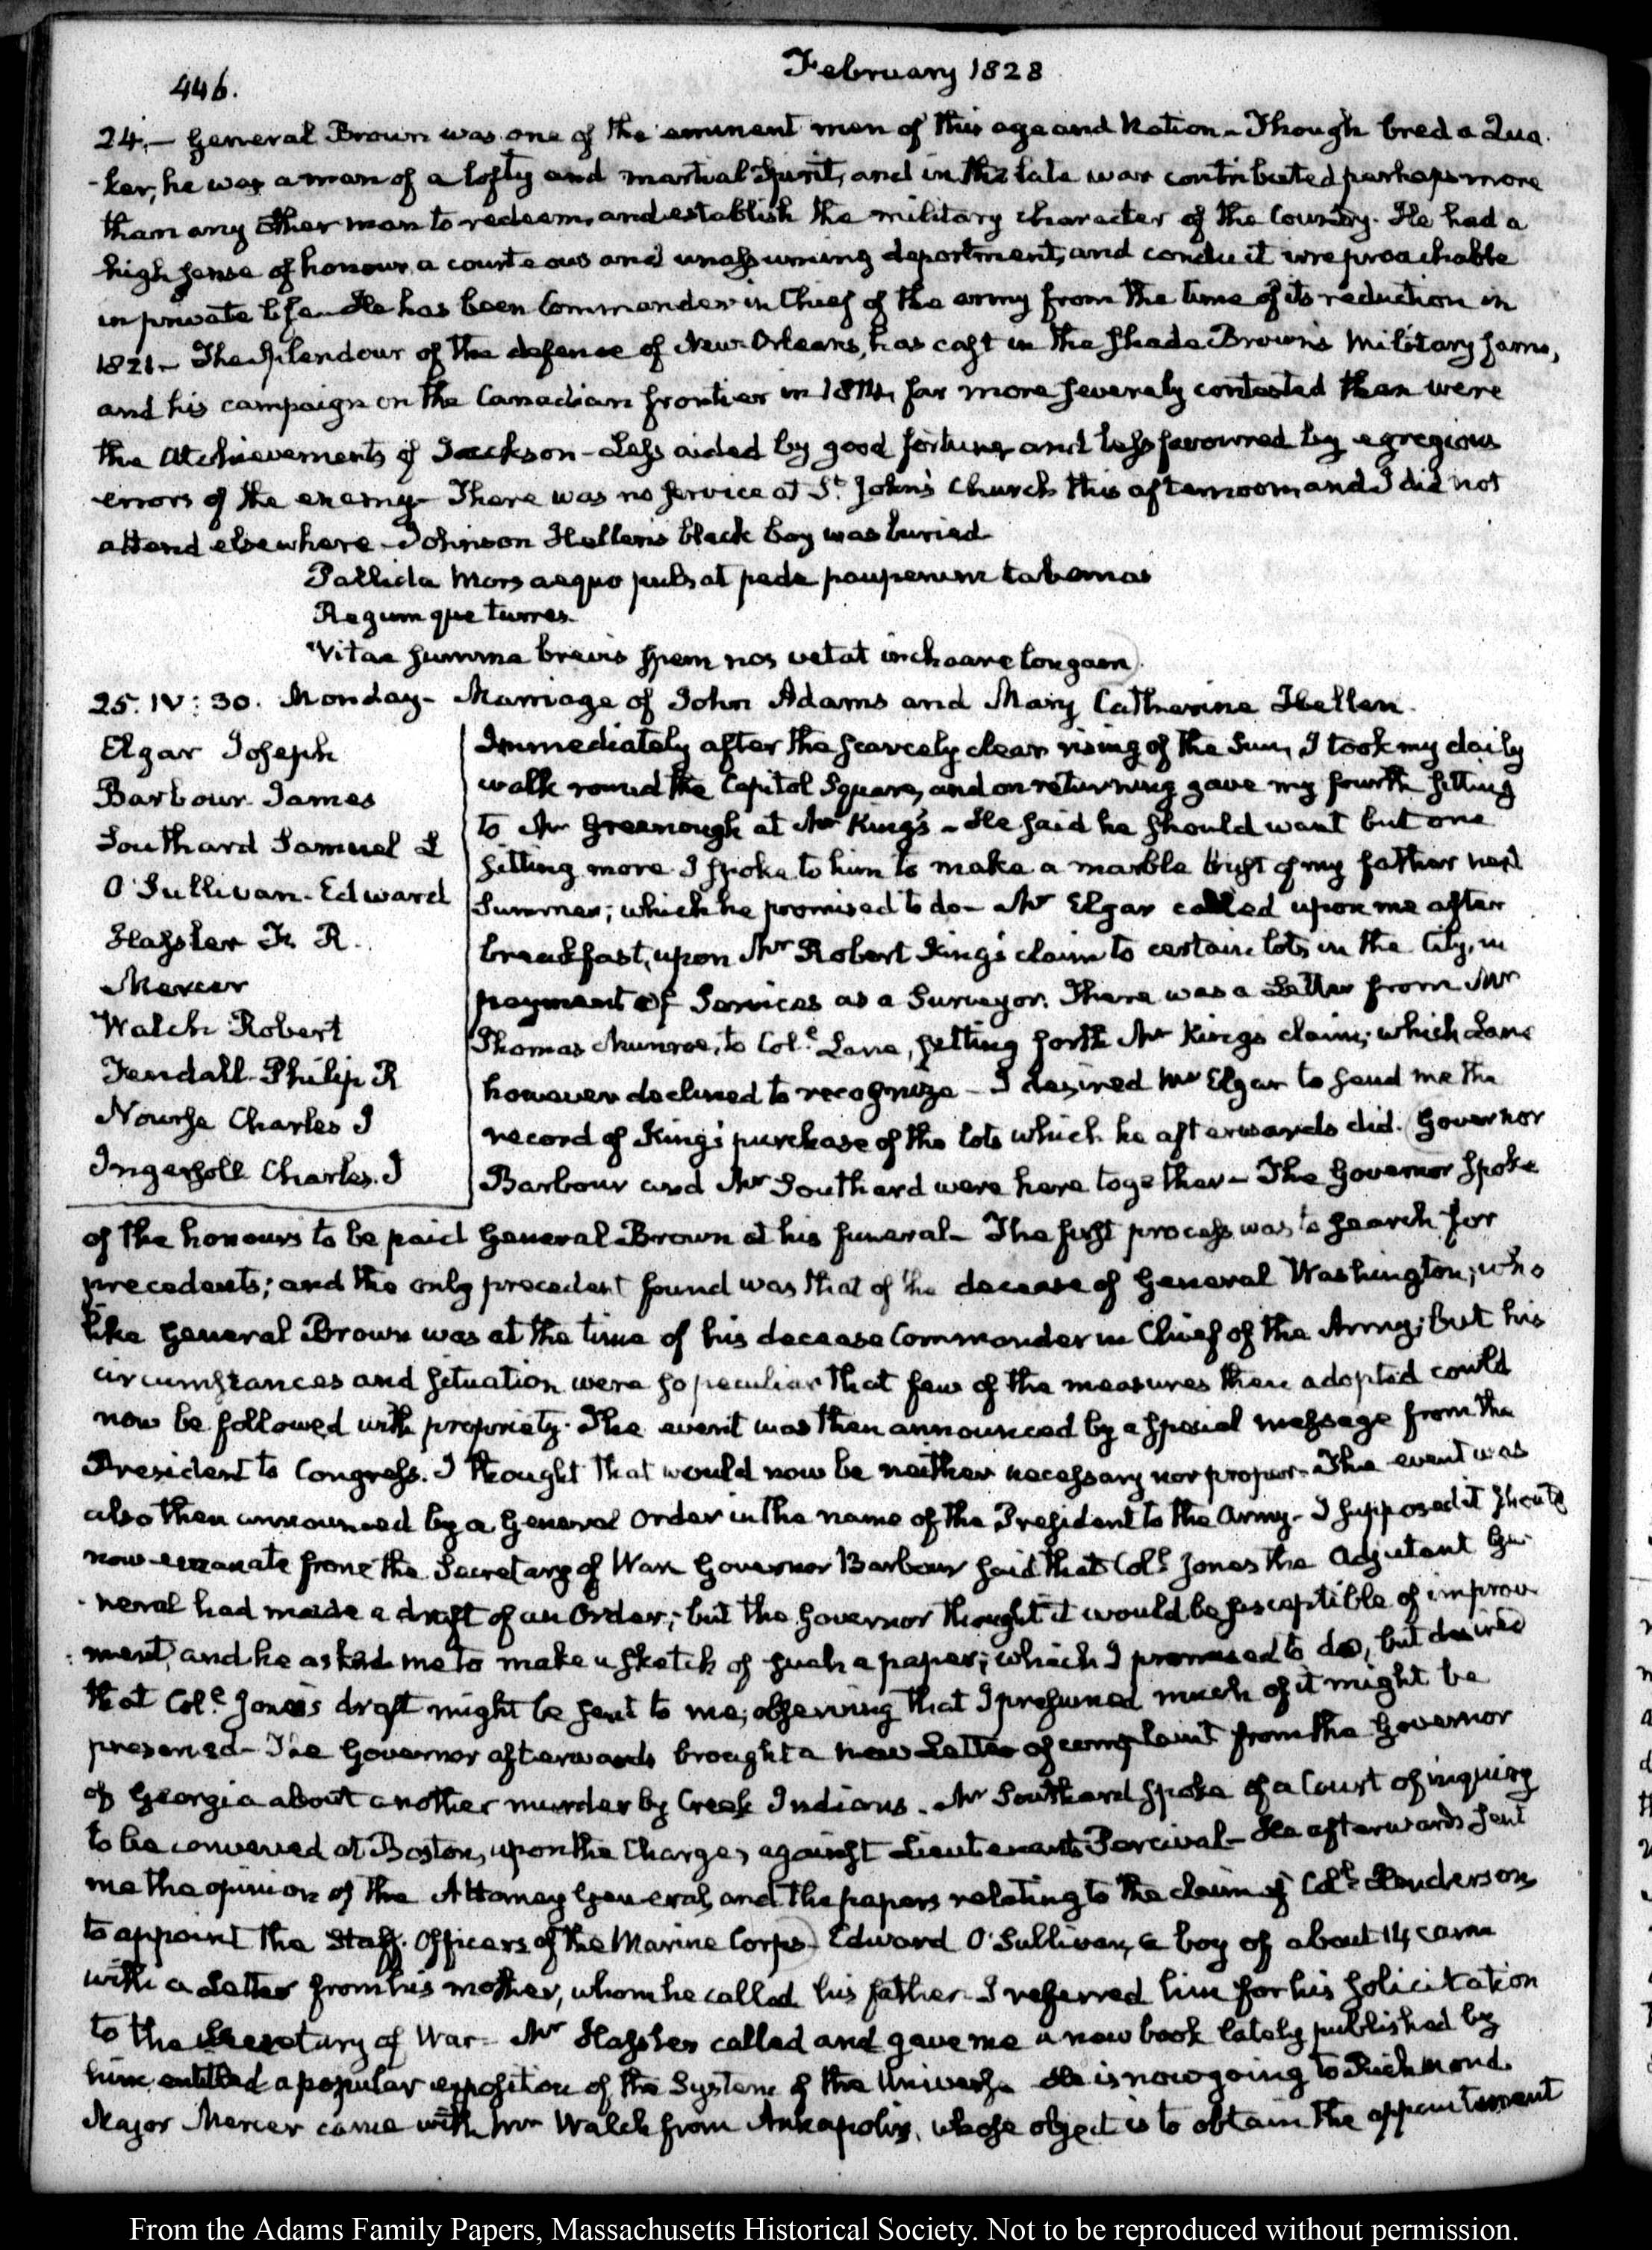 446.
February 1828
24.— General Brown was one of the eminent men of this age and Nation – Though bred a Qua
-ker, he was a man of a lofty and martial Spirit, and in the late war contributed perhaps more
than any other man to redeem, and establish the military character of the Country. He had a
high sense of honour, a courteous and unassuming deportment, and conduct irreproachable
in private life. He has been Commander in Chief of the army from the time of its reduction in
1821 – The splendour of the defence of New-Orleans, has cast in the shade Brown's Military fame,
and his campaign on the Canadian frontier in 1814, far more severely contested than were
the Atchievements of Jackson – Less aided by good fortune, and less favoured by egregious
errors of the enemy – There was no service at St. John's Church this afternoon, and I did not
attend elsewhere – Johnson Hellen's black boy was buried
Pallida Mors aequo pulsat pede pauperum tabernas
Regumque turres.
Vitae summa brevis spem nos vetat inchoare longam.
25. IV: 30. Monday – Marriage of John Adams and Mary Catherine Hellen.
Elgar Joseph
Barbour James
Southard Samuel L
O'Sullivan Edward
Hassler F. R.
Mercer
Walch Robert
Fendall Philip R
Nourse Charles J
Ingersoll Charles J
Immediately after the scarcely clear rising of the Sun, I took my daily
walk round the Capitol Square, and on returning gave my fourth sitting
to Mr Greenough at Mr King's – He said he should want but one
sitting more. I spoke to him to make a marble bust of my father next
Summer; which he promised to do – Mr Elgar called upon me after
breakfast, upon Mr Robert King's claim to certain lots in the City, in
payment of Services as a Surveyor. There was a Letter from Mr
Thomas Munroe, to Coll. Lane, setting forth Mr King's claim; which Lane
however declined to recognize – I desired Mr Elgar to send me the
record of King's purchase of the lots which he afterwards did. Governor
Barbour and Mr Southard were here together – The Governor spoke
of the honours to be paid General Brown at his funeral – The first process was to search for
precedents; and the only precedent found was that of the decease of General Washington; who
like General Brown was at the time of his decease Commander in Chief of the Army; but his
circumstances and situation were so peculiar that few of the measures then adopted could
now be followed with propriety. The event was then announced by a special message from the
President to Congress. I thought that would now be neither necessary nor proper – The event was
also then announced by a General Order in the name of the President to the Army – I supposed it should
now emanate from the Secretary of War. Governor Barbour said that Coll. Jones the Adjutant Ge
-neral had made a draft of an Order; but the Governor thought it would be susceptible of improve
ment, and he asked me to make a sketch of such a paper; which I promised to do, but desired
that Coll. Jones's draft might be sent to me; observing that I presumed much of it might be
preserved – The Governor afterwards brought a new Letter of complaint from the Governor
of Georgia about another murder by Creek Indians. Mr Southard spoke of a Court of inquiry
to be convened at Boston, upon the Charges against Lieutenant Percival – He afterwards sent
me the opinion of the Attorney General, and the papers relating to the claim of Coll. Henderson
to appoint the Staff Officers of the Marine Corps. Edward O'Sullivan, a boy of about 14 came
with a Letter from his mother, whom he called his father. I referred him for his solicitation
to the Secretary of War – Mr Hassler called and gave me a new book lately published by
him entitled a popular exposition of the System of the Universe. He is now going to Richmond.
Major Mercer came with Mr Walch from Annapolis, whose object is to obtain the appointment
From the Adams Family Papers, Massachusetts Historical Society. Not to be reproduced without permission.